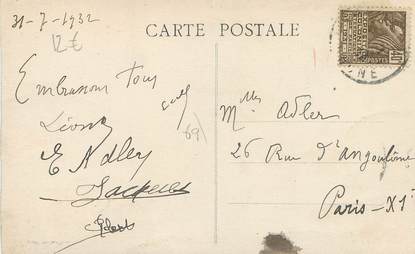 31-7-1932
12€
CARTE POSTALE
POSTES
NE
Embrassons Tous
Léon
E Adler
Jacques
69
Mlles Adler
26 Rue d'angoulême
Paris-XI